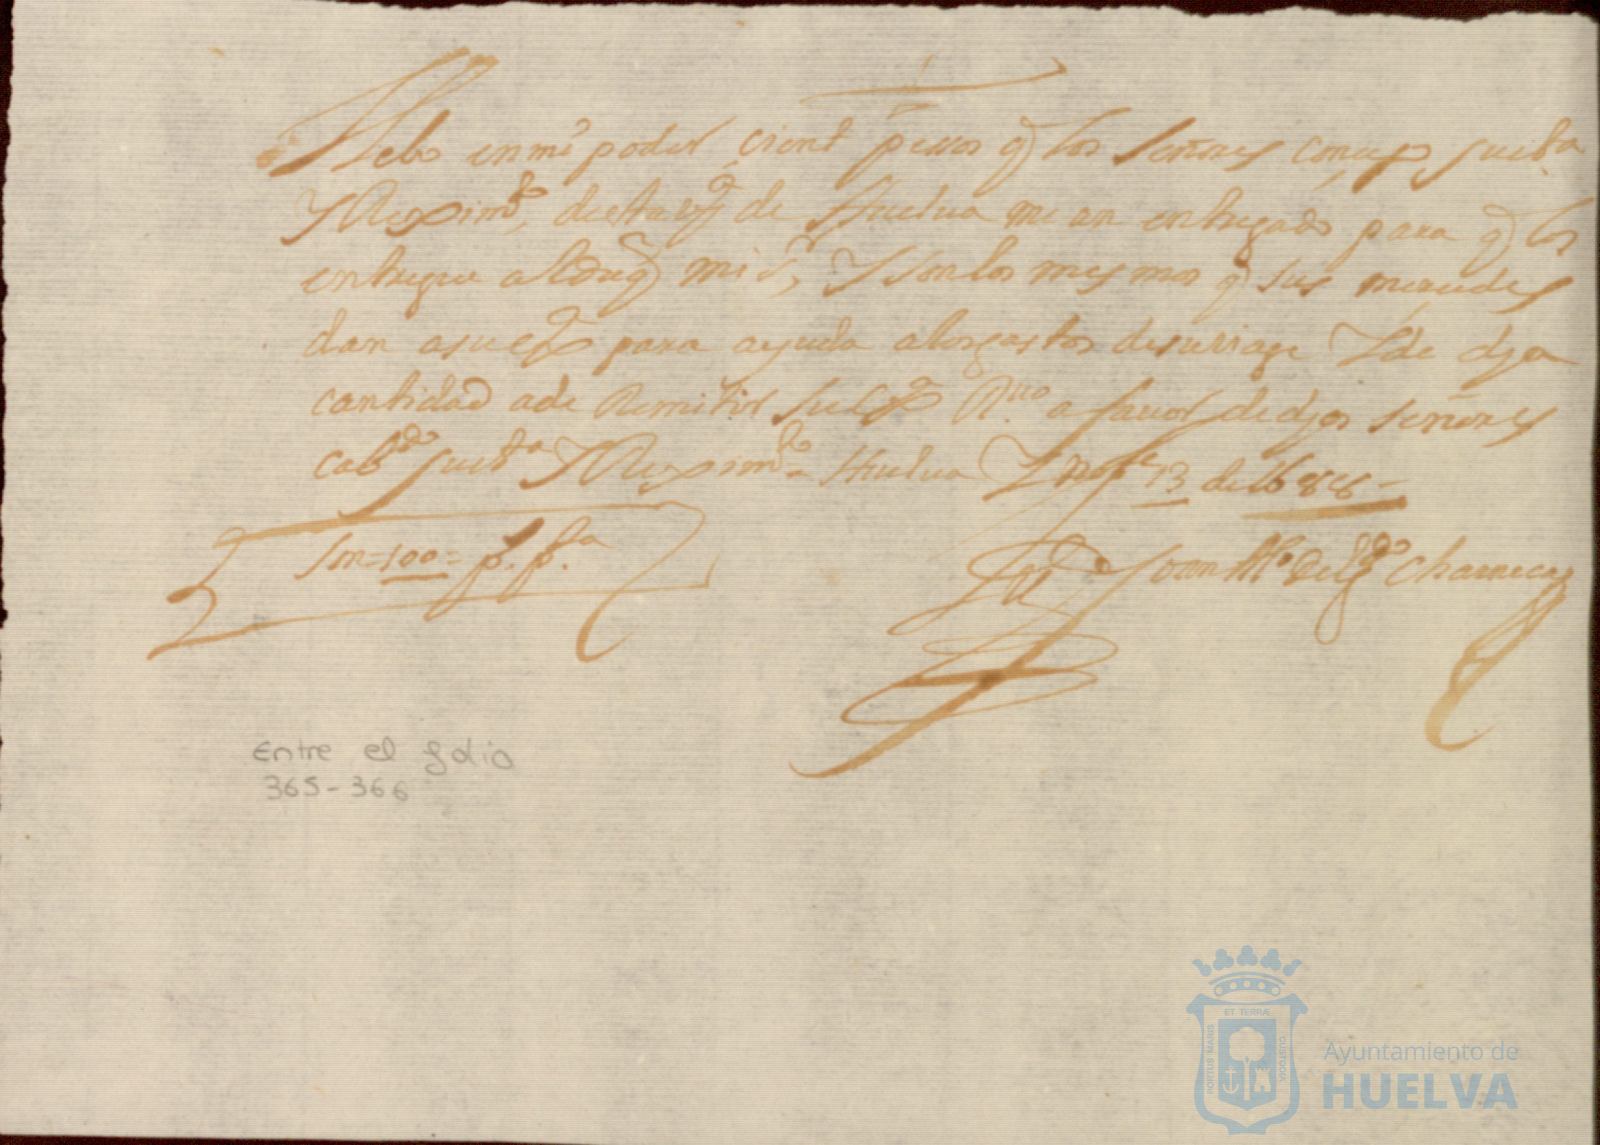 Llebo en mi poder cient pesos q los señores consejo Justa
Y Reximto, desta va de Huelua me an entregado para q los
entregue al duq mi sr, Y son los mesmos q sus mercedes
dan a su exa para ayuda a los gastos de su viage Y de dha
cantidad a de Remitir su exa Rvo a favor de dhos señores
cabdo Justa Y Reximto Huelua Y 13 de 1688
Son = 100 = ps. pta
Joan de Charneca
Entre el folio
365-366
PORTUS MARIS ET TERRÆ CUSTODIA
Ayuntamiento de
HUELVA